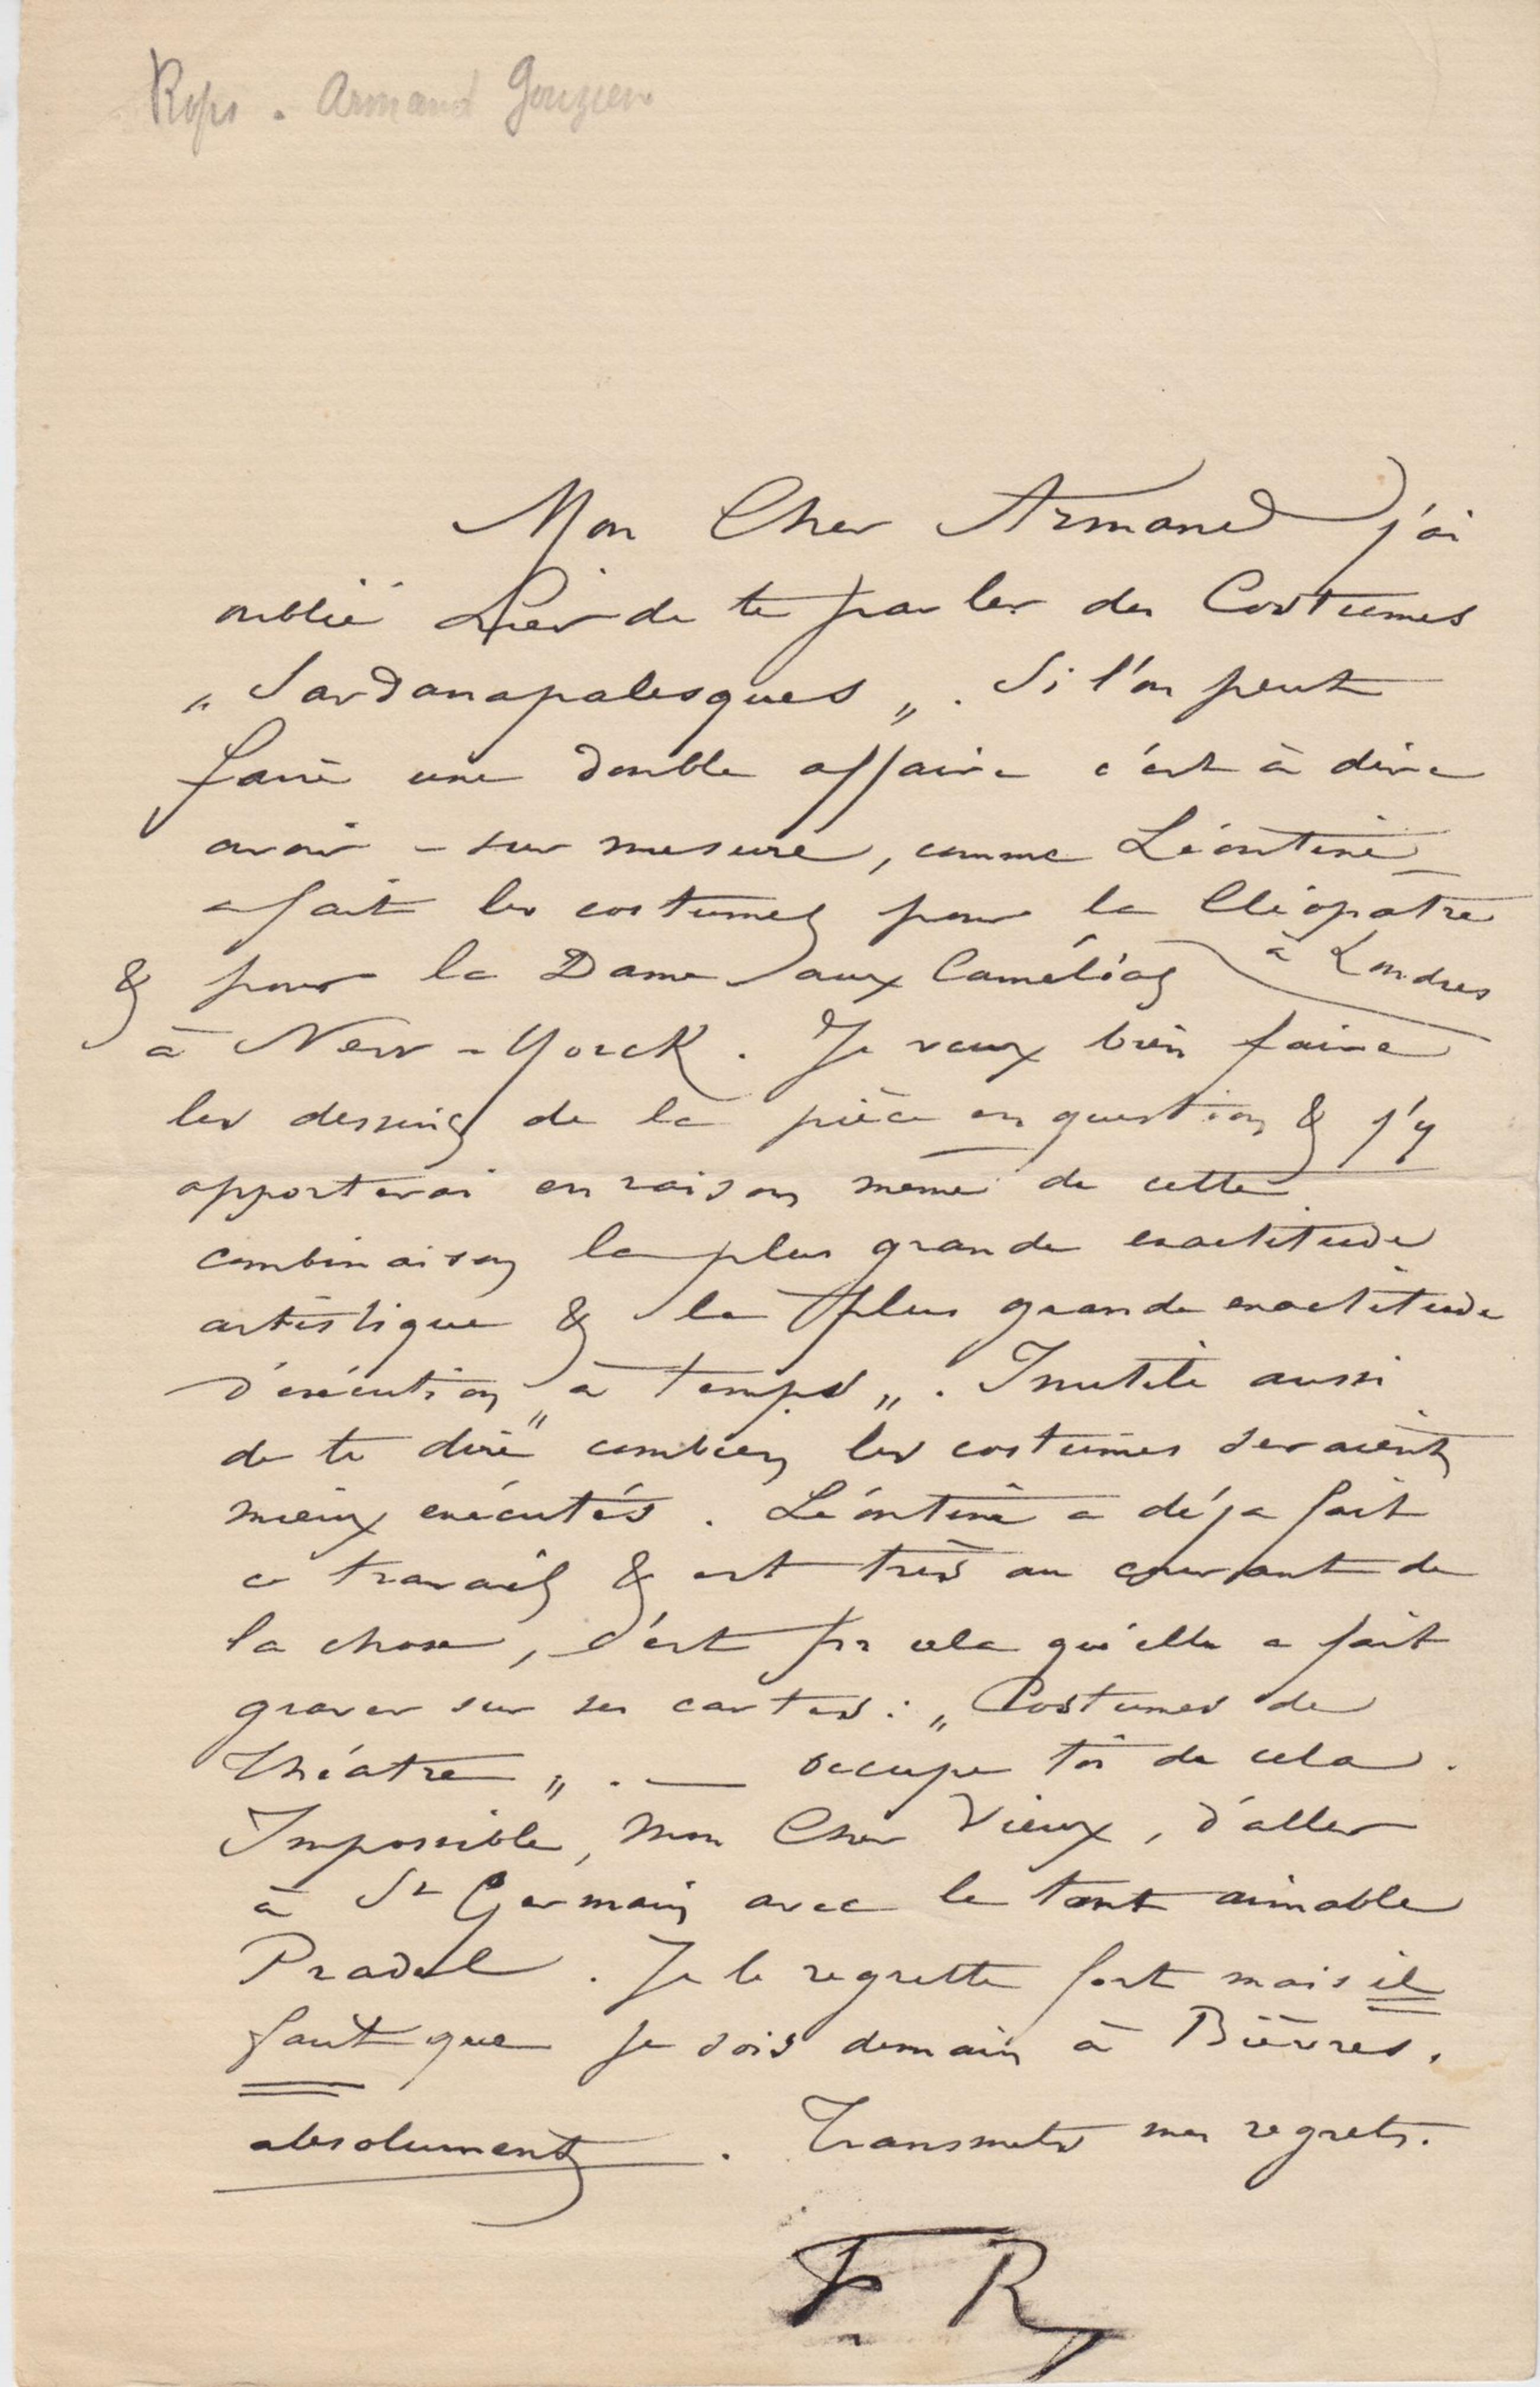 Rops. Armand Gouzien
Mon Cher Armand j'ai
oublié hier de te parler des Costumes
„Sardanapalesques„. Si l'on peut
faire une double affaire c'est à dire
avoir – sur mesure, comme Léontine
a fait les costumes pour la Cléopatre
à Londres
& pour la Dame aux Camélias
à New-Yorck. Je veux bien faire
les dessins de la pièce en question & j'y
apporterai en raison même de cette
combinaison la plus grande exactitude
artistique & la plus grande exactitude
d'exécution „à temps„. Inutile aussi
de te dire combien les costumes seraient
mieux exécutés. Léontine a déja fait
ce travail & est très au courant de
la chose, c'est pr cela qu'elle a fait
graver sur ses cartes: „Costumes de
théatre„. — occupe toi de cela.
Impossible, mon Cher Vieux, d'aller
à St Germain avec le tout aimable
Pradel. Je le regrette fort mais il
faut que je sois demain à Bièvres,
absolument. Transmets mes regrets.
F R